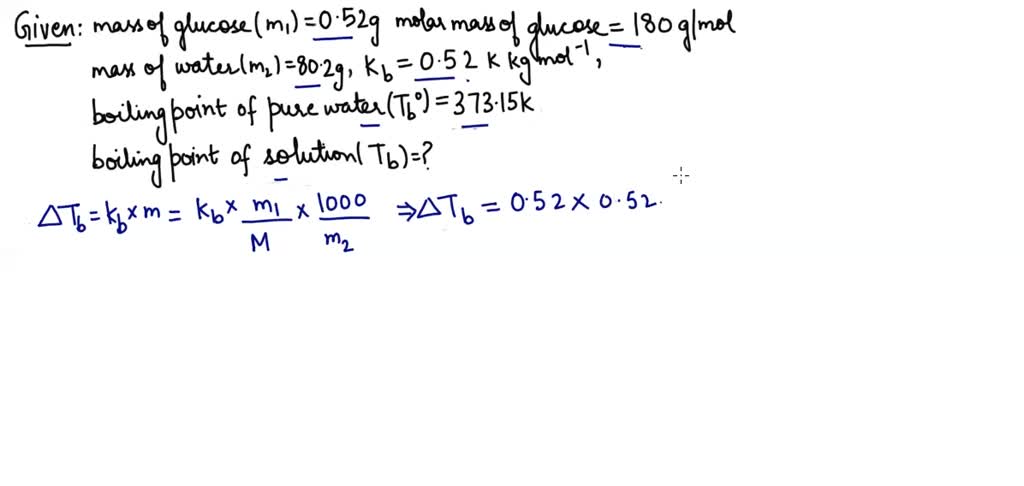 Given: mass of glucose (m₁) = 0.52g molar mass of glucose = 180 g/mol
mass of water (m₂) = 80.2g, Kb = 0.52 K kg mol⁻¹,
boiling point of pure water (Tb°) = 373.15K
boiling point of solution (Tb) = ?
ΔTb = kb × m = kb × m₁/M × 1000/m₂ ⇒ ΔTb = 0.52 × 0.52